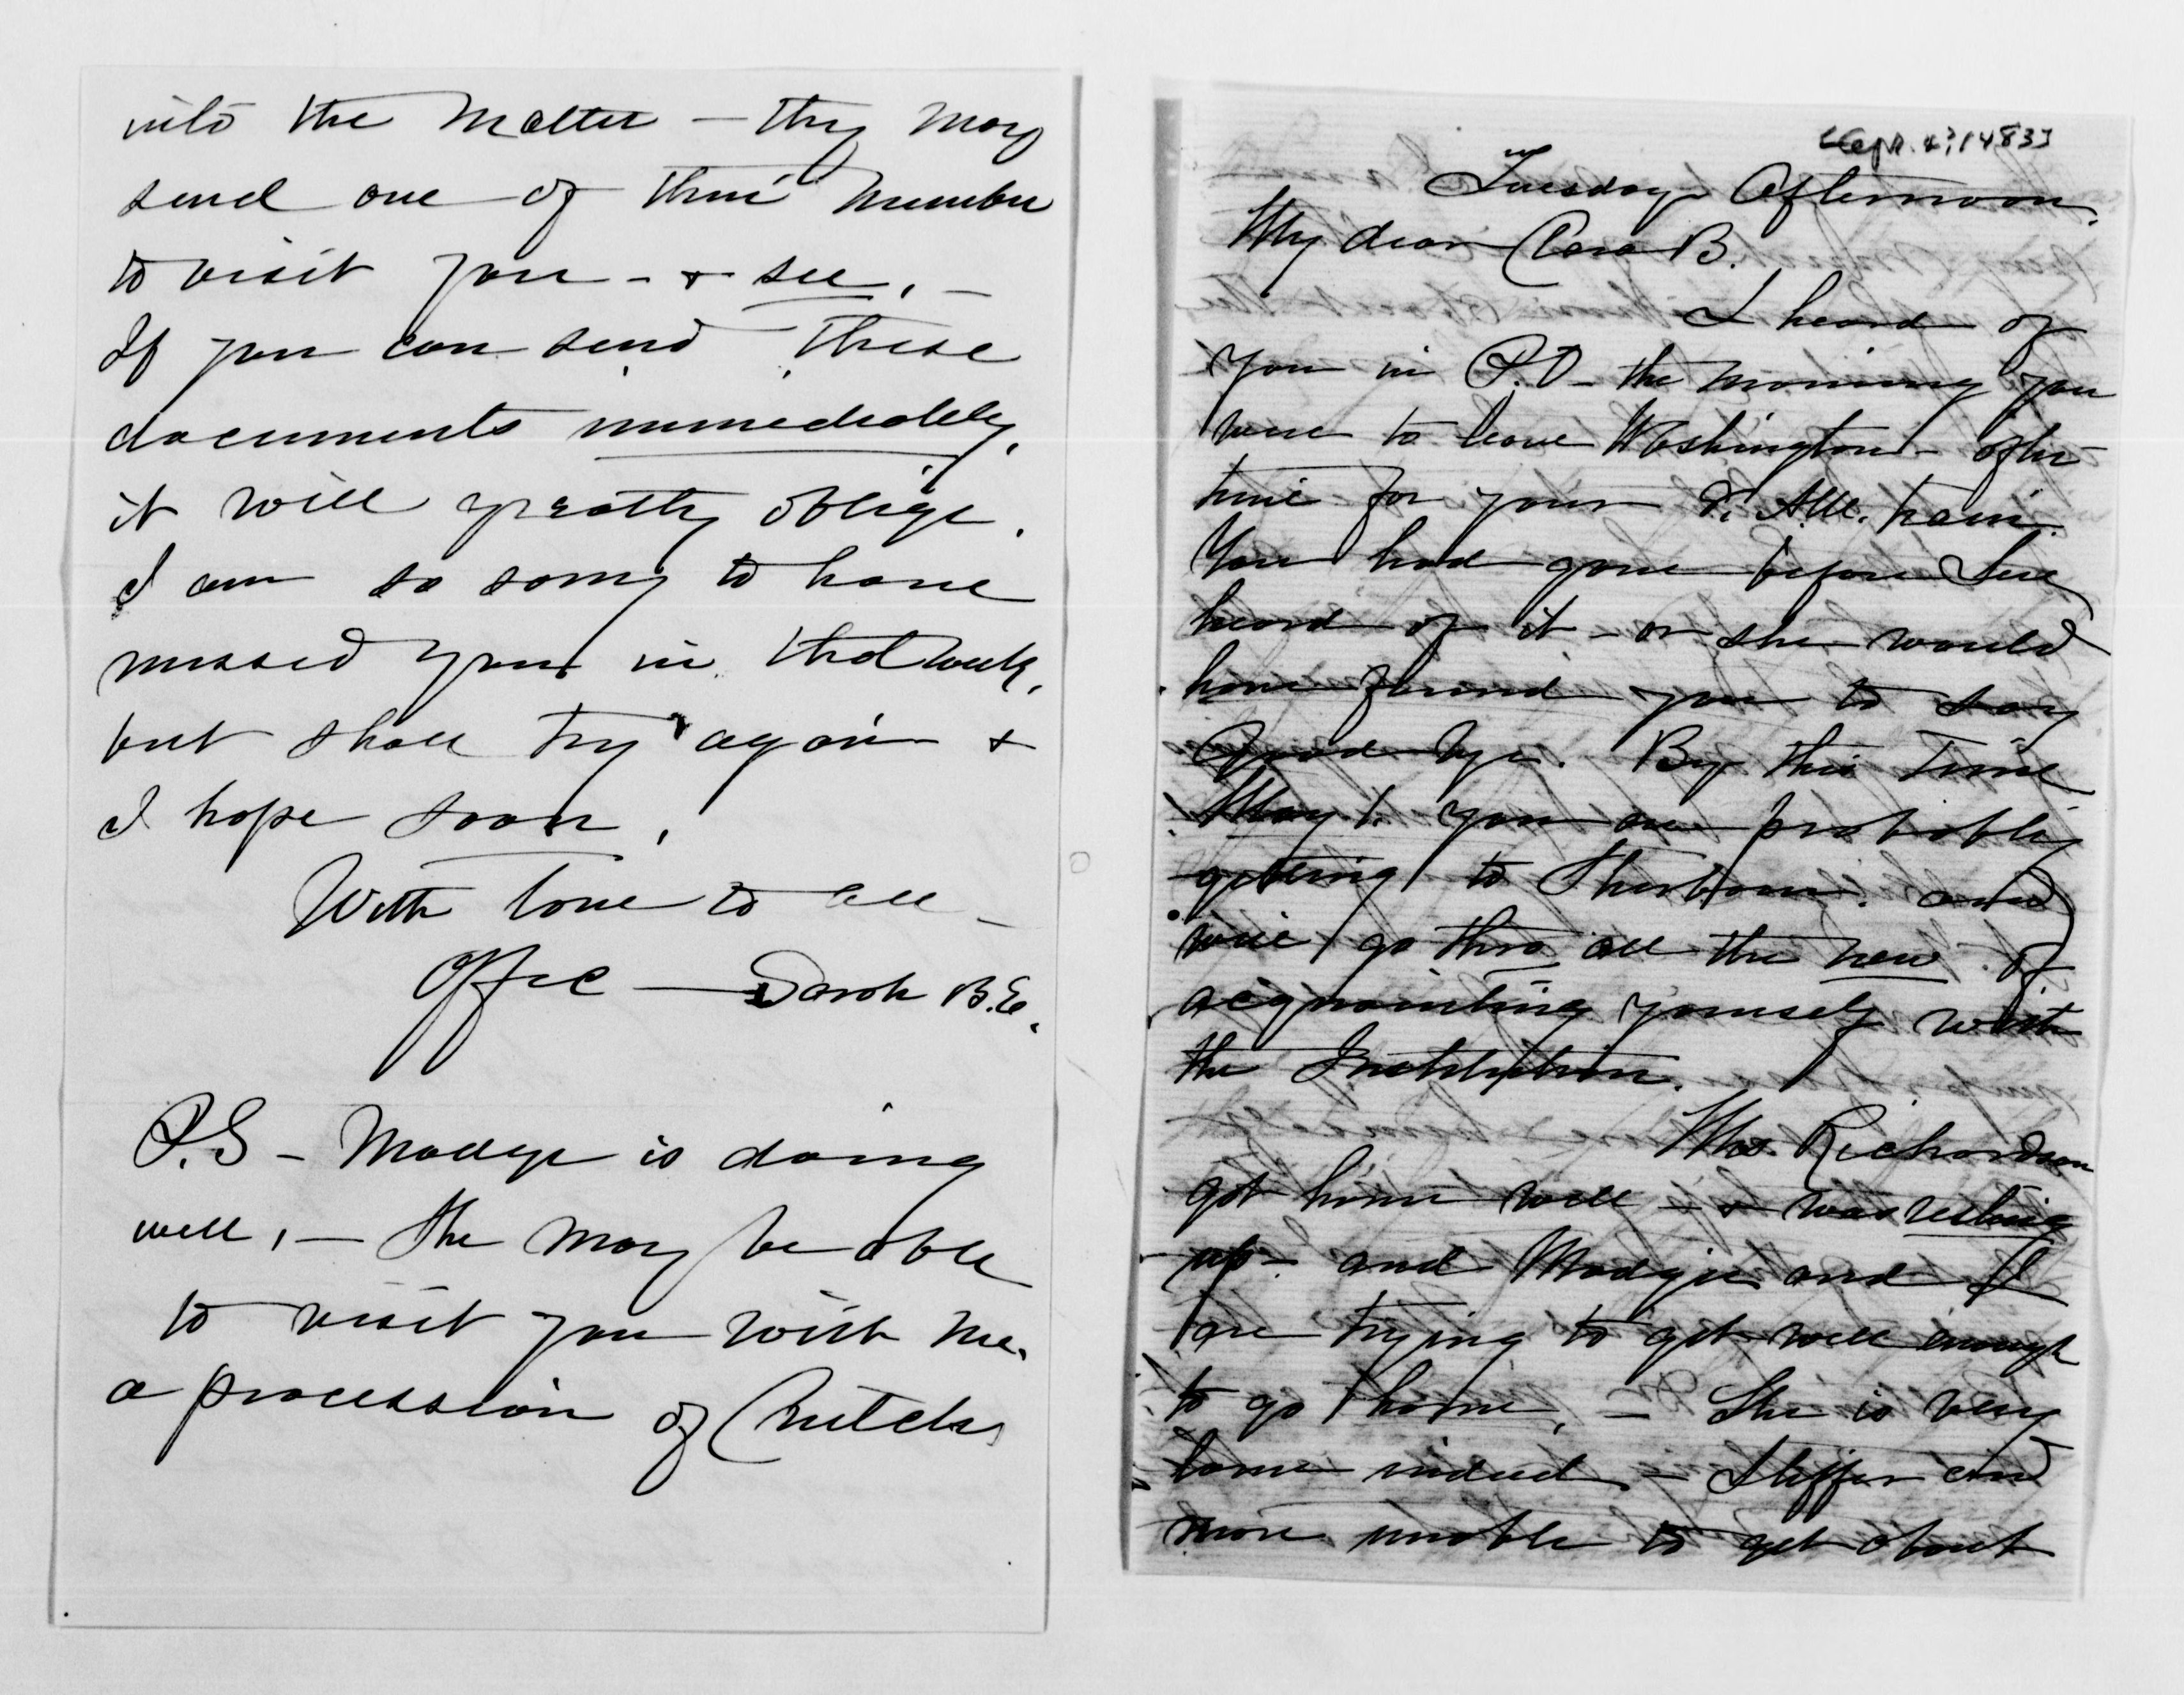 into the matter — they may
send one of their number
to visit you - & see. —
If you can send these
documents immediately,
it will greatly oblige.
I am so sorry to have
missed you in that week,
but shall try again &
I hope soon.
With love to all —
Affec — Sarah B.E.
P.S — Madge is doing
well, — She may be able
to visit you with me.
a procession of Crutches
Tuesday Afternoon.
My dear Clara B.
I heard of
you in P.O — the morning you
were to leave Washington - after
time for your A.M. train.
You had gone before Sue
heard of it - or she would
have found you to say
Good bye. By this time
May 1. you are probably
getting to Sherborn. and
will go thro all the new of
acquainting yourself with
the Institution.
Mrs. Richardson
got home well — & was resting
up - and Madgie and I
are trying to get well enough
to go home, — She is very
lame indeed — Stiffer and
more unable to get about